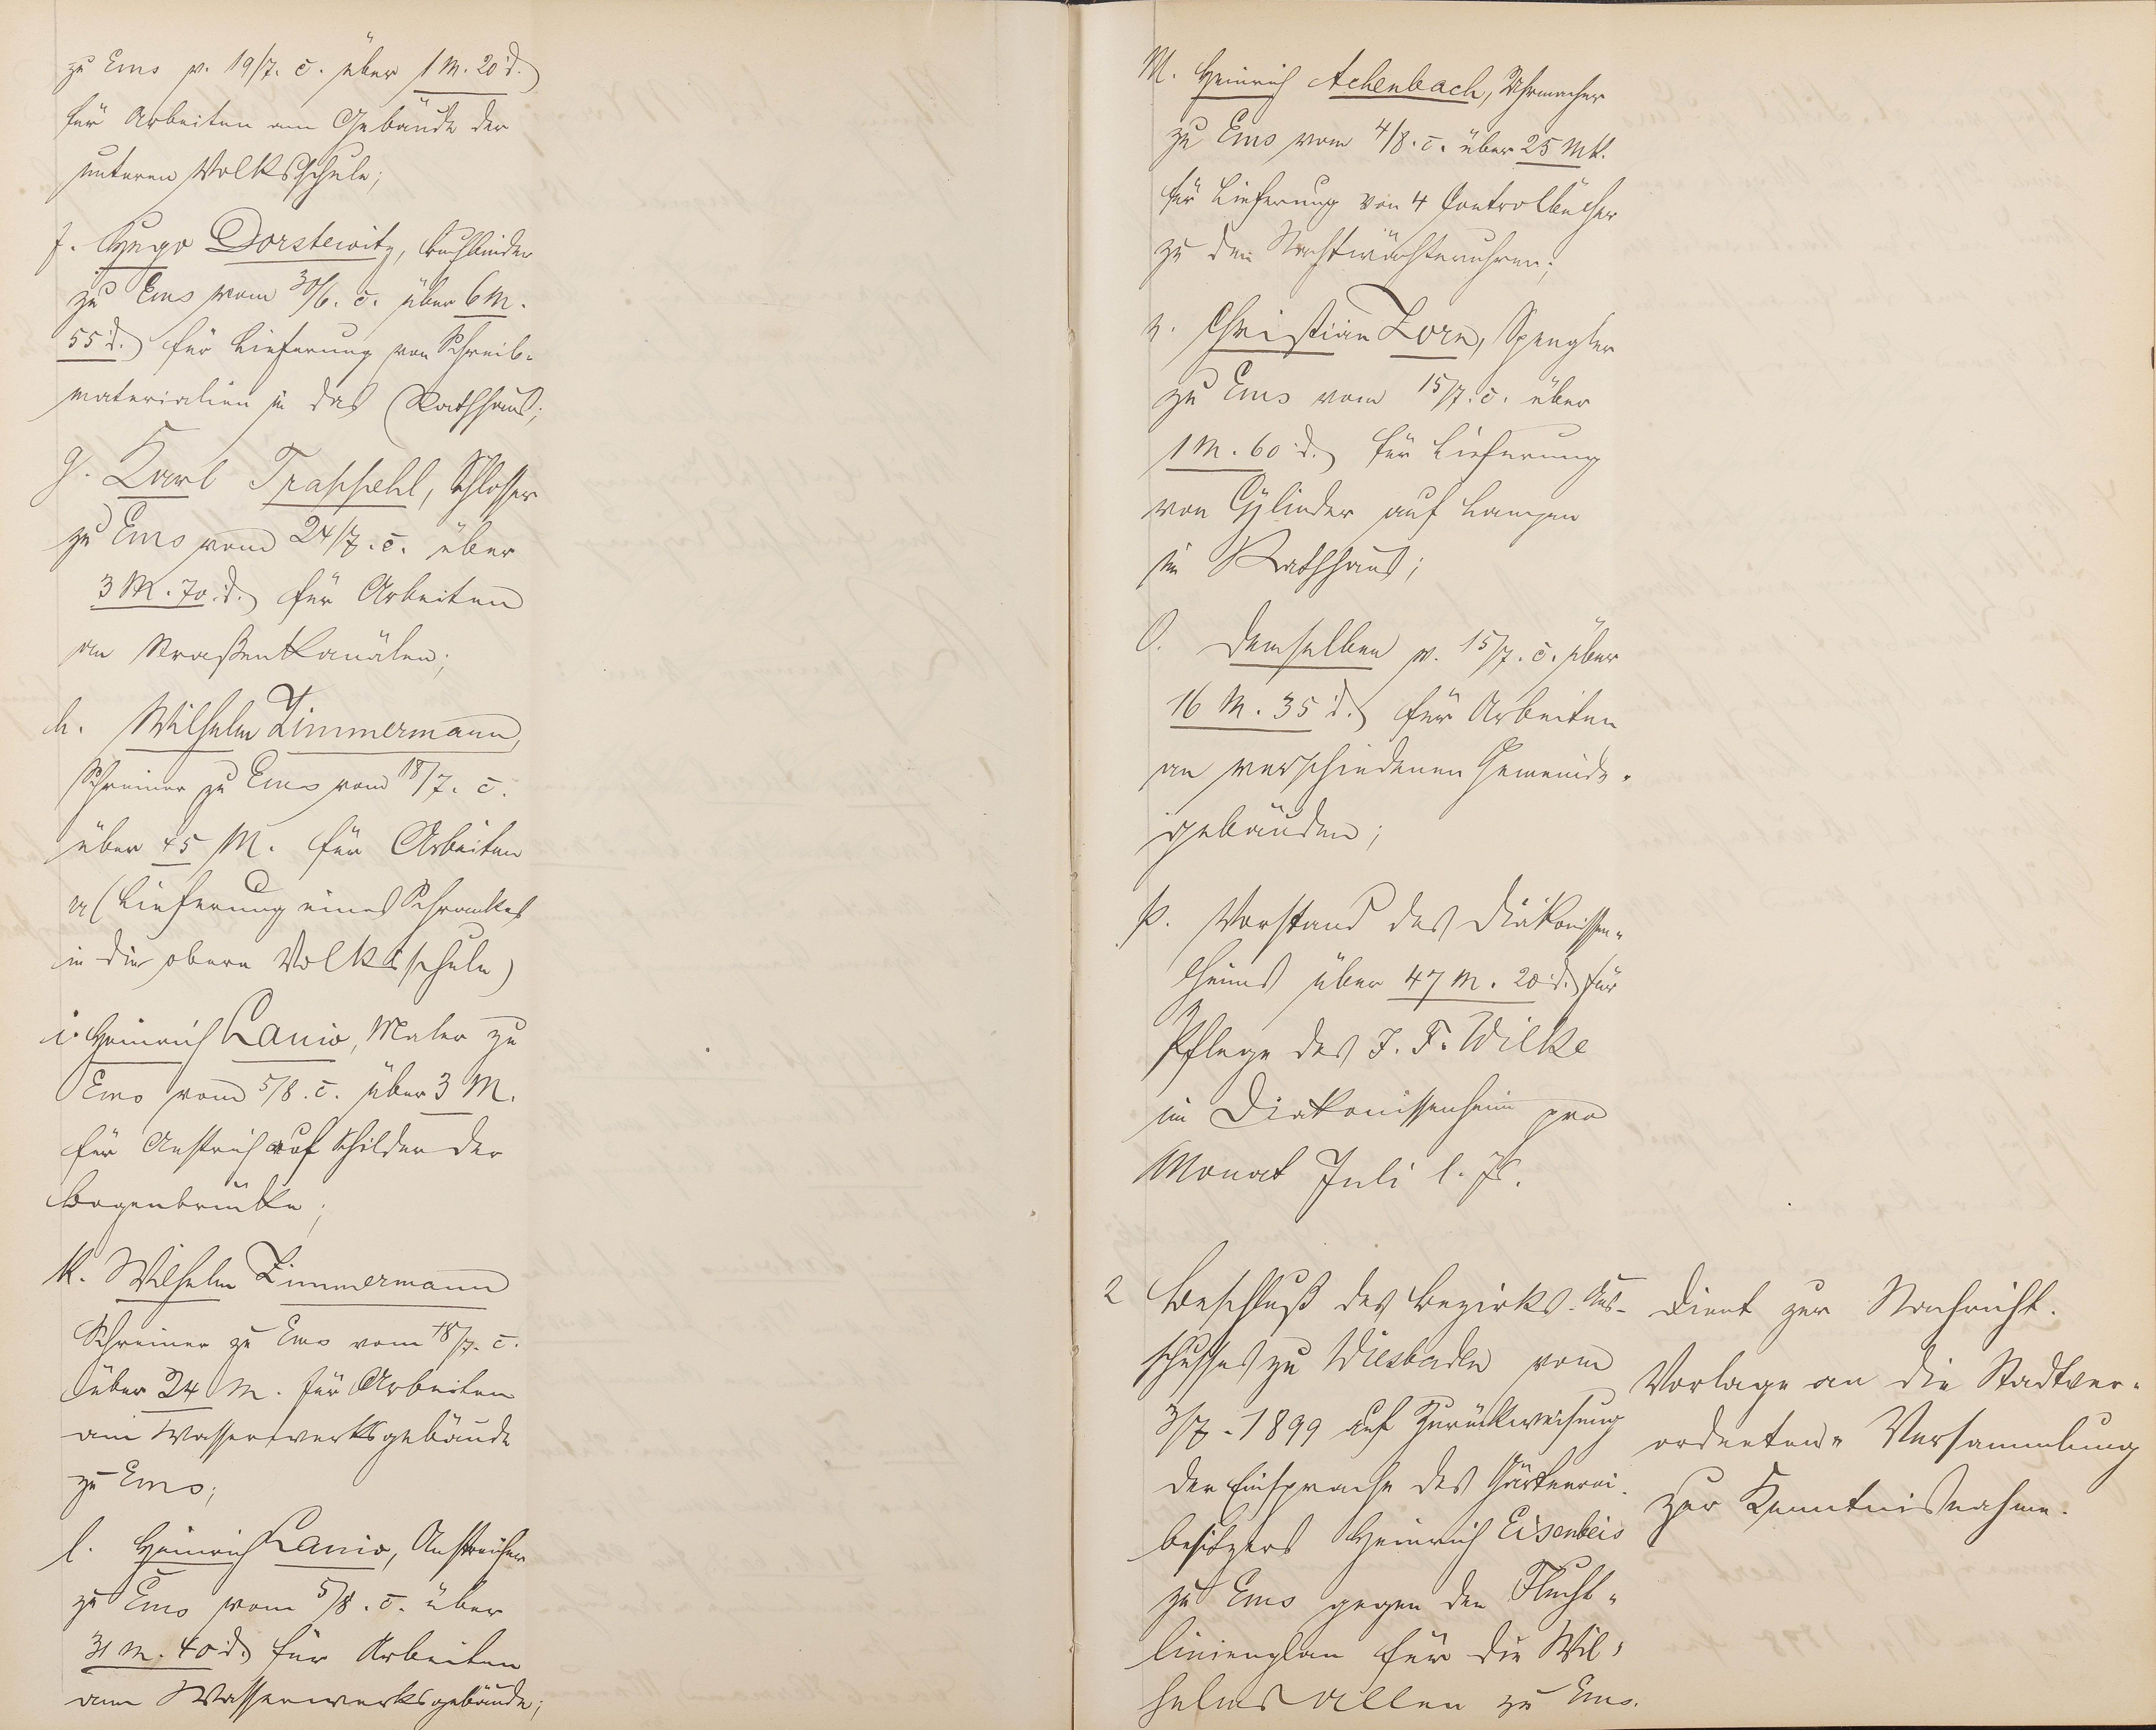 zu Ems v. 19/7. c. über 1 M. 20 d.
für Arbeiten am Gebäude der
unteren Volksschule;
f. Hugo Dorstewitz, Buchbinder
zu Ems vom 30/6. c. über 6 M.
55 d. für Lieferung von Schreib-
materialien in das Rathhaus;
g. Karl Trappehl, Schlosser
zu Ems vom 24/7. c. über
3 M. 70 d. für Arbeiten
an Straßenkanälen;
h. Wilhelm Zimmermann,
Schreiner zu Ems vom 18/7. c.
über 45 M. für Arbeiten
(Lieferung eines Schrankes
in die obere Volksschule)
i. Heinrich Lanio, Maler zu
Ems vom 5/8. c. über 3 M.
für Anstrich auf Schilder der
Bogenbrücke;
k. Wilhelm Zimmermann
Schreiner zu Ems vom 18/7. c.
über 24 M. für Arbeiten
am Wasserwerksgebäude
zu Ems;
l. Heinrich Lanio, Anstreicher
zu Ems vom 5/8. c. über
31 M. 40 d. für Arbeiten
am Wasserwerksgebäude;
M. Heinrich Achenbach, Uhrmacher
zu Ems vom 4/8. c. über 25 Mk.
für Lieferung von 4 Controlbücher
zu den Nachtwächteruhren;
n. Christian Zorn, Spengler
zu Ems vom 15/7. c. über
1 M. 60 d. für Lieferung
von Cylinder auf Lampen
im Rathhaus;
O. Demselben v. 15/7. c. über
16 M. 35 d. für Arbeiten
an verschiedenen Gemeinde-
gebäuden;
p. Vorstand des Diakonissen-
heims über 47 M. 20 d. für
Pflege des J. F. Wilke
im Diakonissenheim pro
Monat Juli l. Js.
2 Beschluß des Bezirks-Aus-
schusses zu Wiesbaden vom
3/7. 1899 auf Zurückweisung
der Einsprache des Gärtnerei-
besitzers Heinrich Eisenbeis
zu Ems gegen den Flucht-
linienplan für die Wil-
helms allee zu Ems.
Dient zur Nachricht.
Vorlage an die Stadtver-
ordneten-Versammlung
zur Kenntnisnahme.